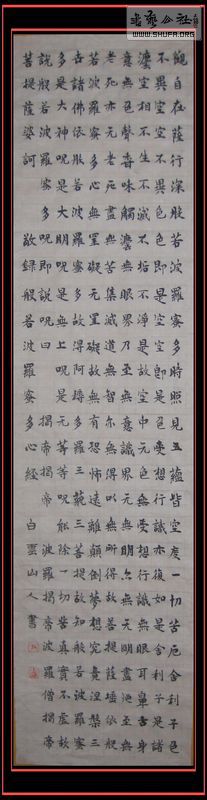 書法公社
WWW.SHUFA.ORG
觀自在薩行深般若波羅蜜多時照見五蘊皆空度一切苦厄舍利子色
不異空空不異色色即是空空即是色受想行識亦復如是舍利子是諸
灋空相不生不滅不垢不淨是故空中元色無受想行識無眼耳鼻舌身
意無色聲香味觸灋無眼界乃至無意識界無無明亦無元明盡乃至無
老死亦元老死盡無苦集滅道無智亦無得以無所得故菩提薩埵依般
若波羅蜜多心無罣礙无罣礙故無有恐怖遠離顛倒夢想究竟涅槃三
世諸佛依般若波羅蜜多故得阿耨多羅三藐三菩提故知般若波羅蜜
多是大神呪是大明呪是無上呪是元等等呪能除一切苦真實不虛故
說般若波羅蜜多呪即說呪曰 揭帝揭帝 波羅揭帝 波羅僧揭帝
菩提薩婆訶 敬録般若波羅蜜多心經 白雲山人書